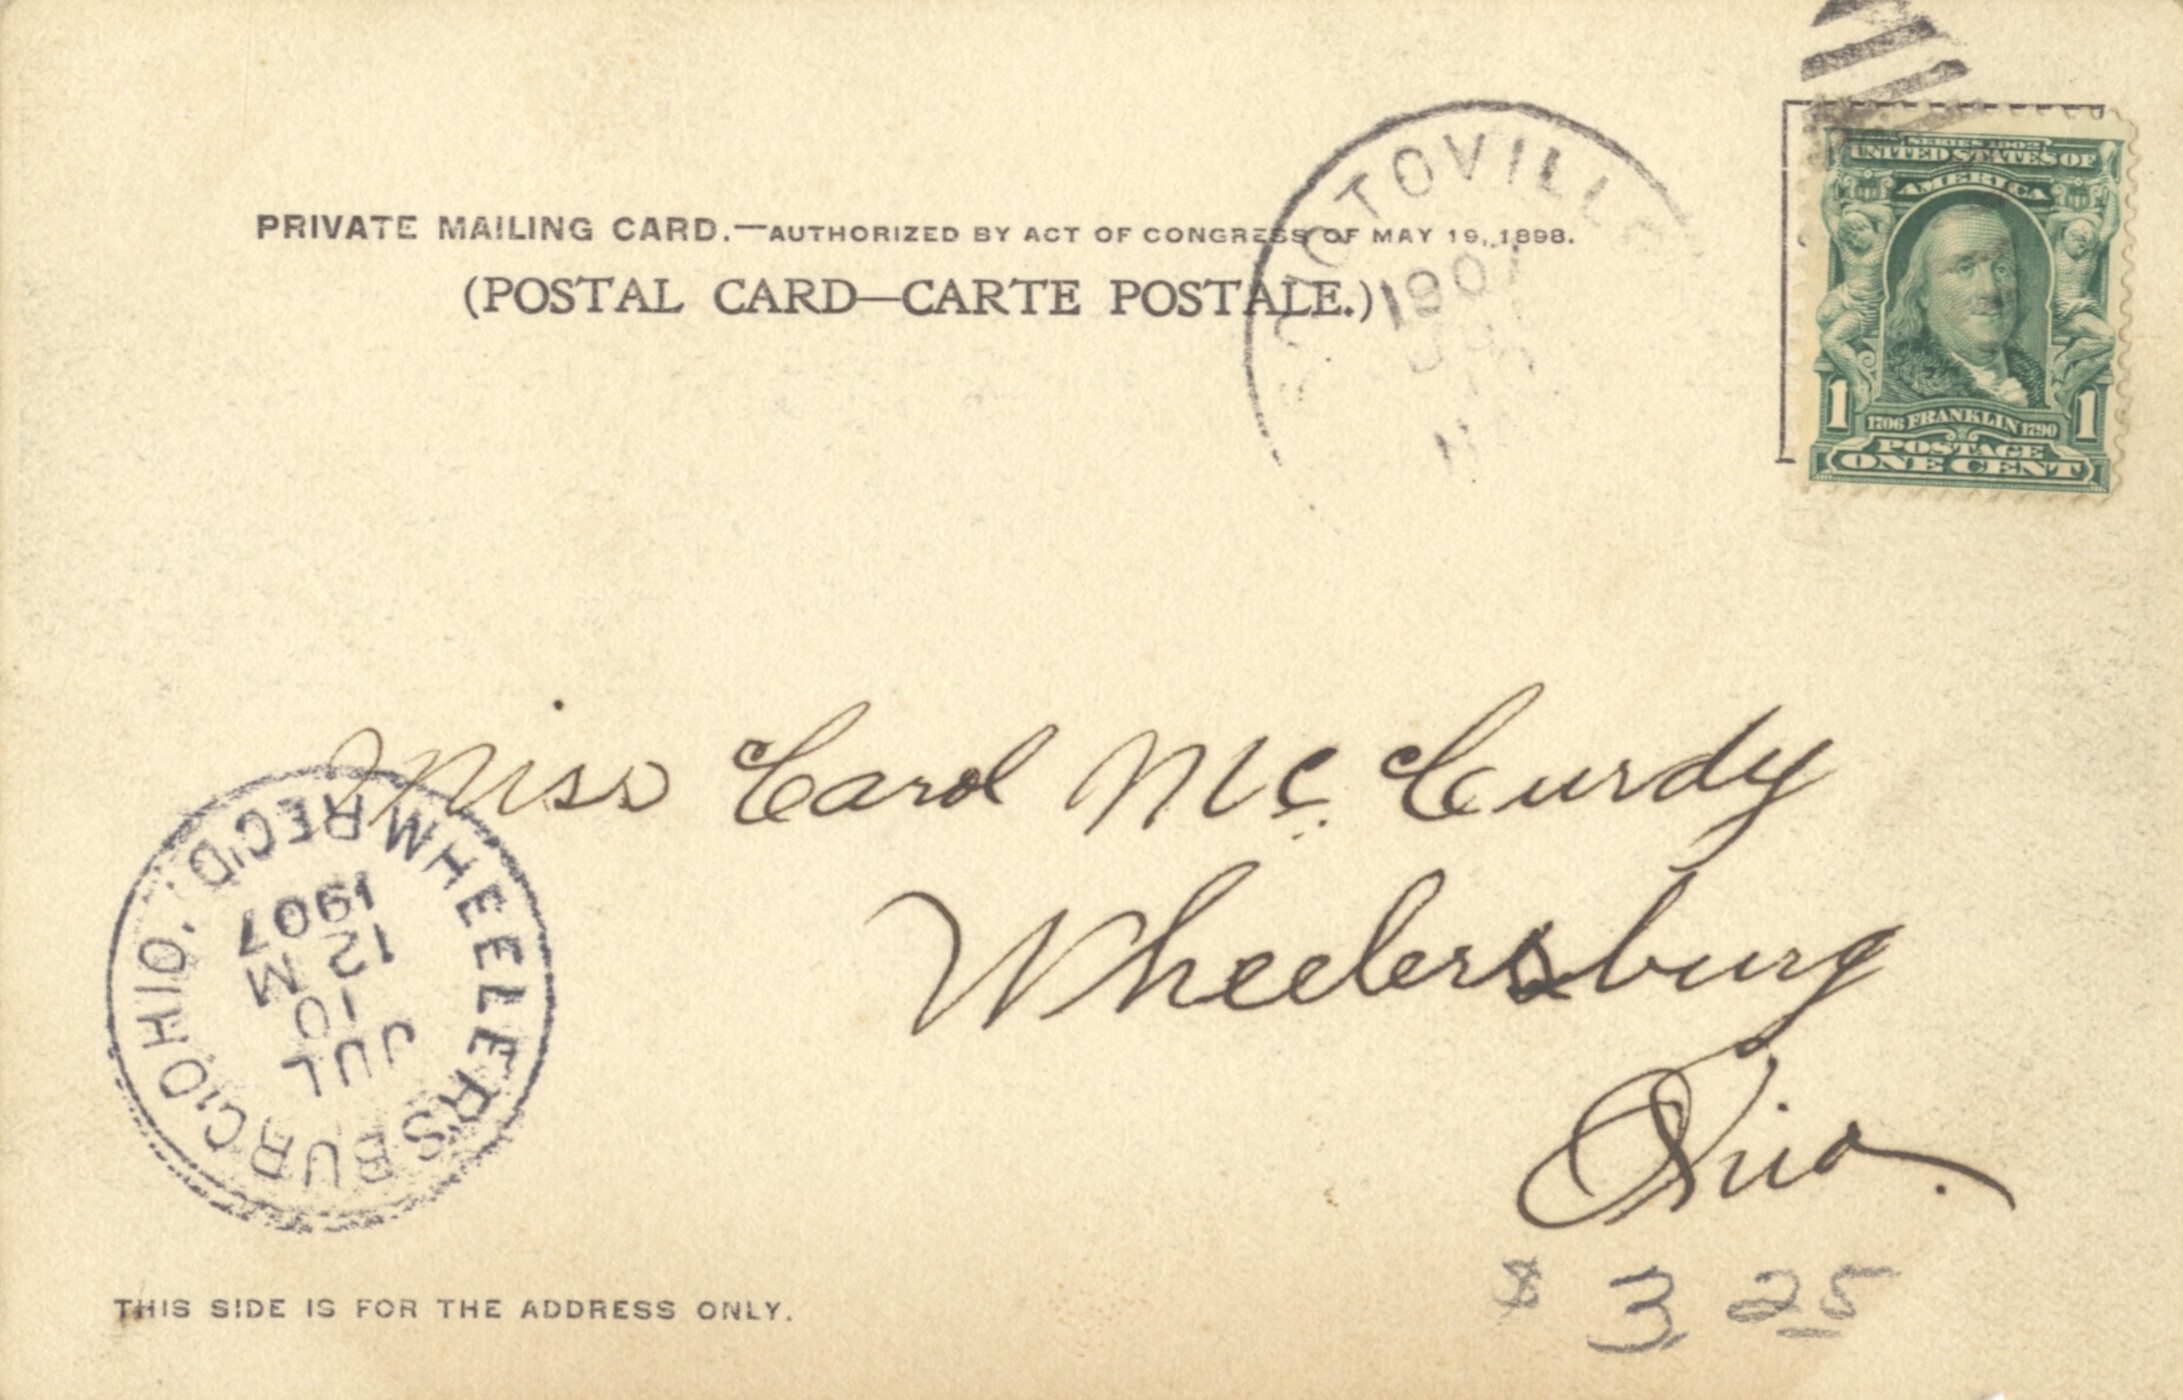 PRIVATE MAILING CARD.—AUTHORIZED BY ACT OF CONGRESS OF MAY 19, 1898.
(POSTAL CARD—CARTE POSTALE.)
SCIOTOVILLE
1907
SERIES 1902
UNITED STATES OF
AMERICA
1 1706 FRANKLIN 1790 1
POSTAGE
ONE CENT
Miss Carol McCurdy
Wheelersburg
Ohio.
WHEELERSBURG OHIO. REC'D.
JUL
10
M
12
1907
THIS SIDE IS FOR THE ADDRESS ONLY.
$ 3 25